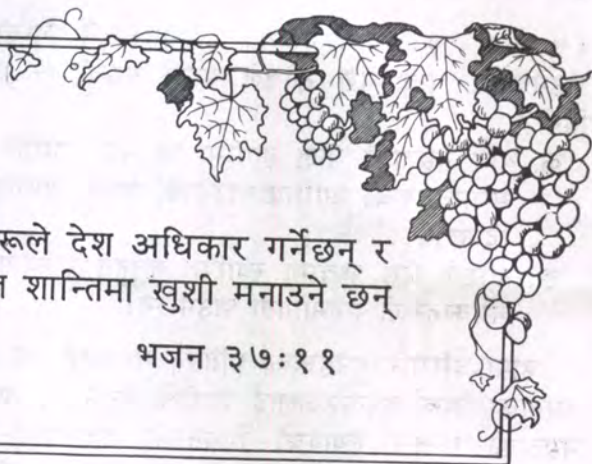 रूले देश अधिकार गर्नेछन् र
शान्तिमा खुशी मनाउने छन्
भजन ३७:११